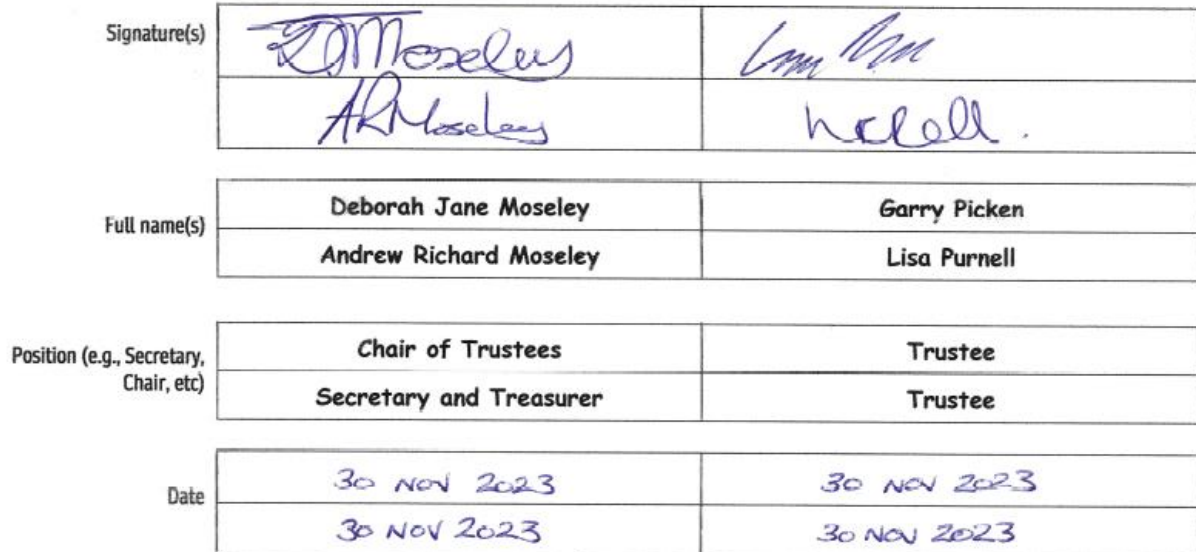 Signature(s)
DJMoseley
ARMoseley
Full name(s)
Deborah Jane Moseley
Garry Picken
Andrew Richard Moseley
Lisa Purnell
Position (e.g., Secretary,
Chair, etc)
Chair of Trustees
Trustee
Secretary and Treasurer
Trustee
Date
30 NOV 2023
30 NOV 2023
30 NOV 2023
30 NOV 2023